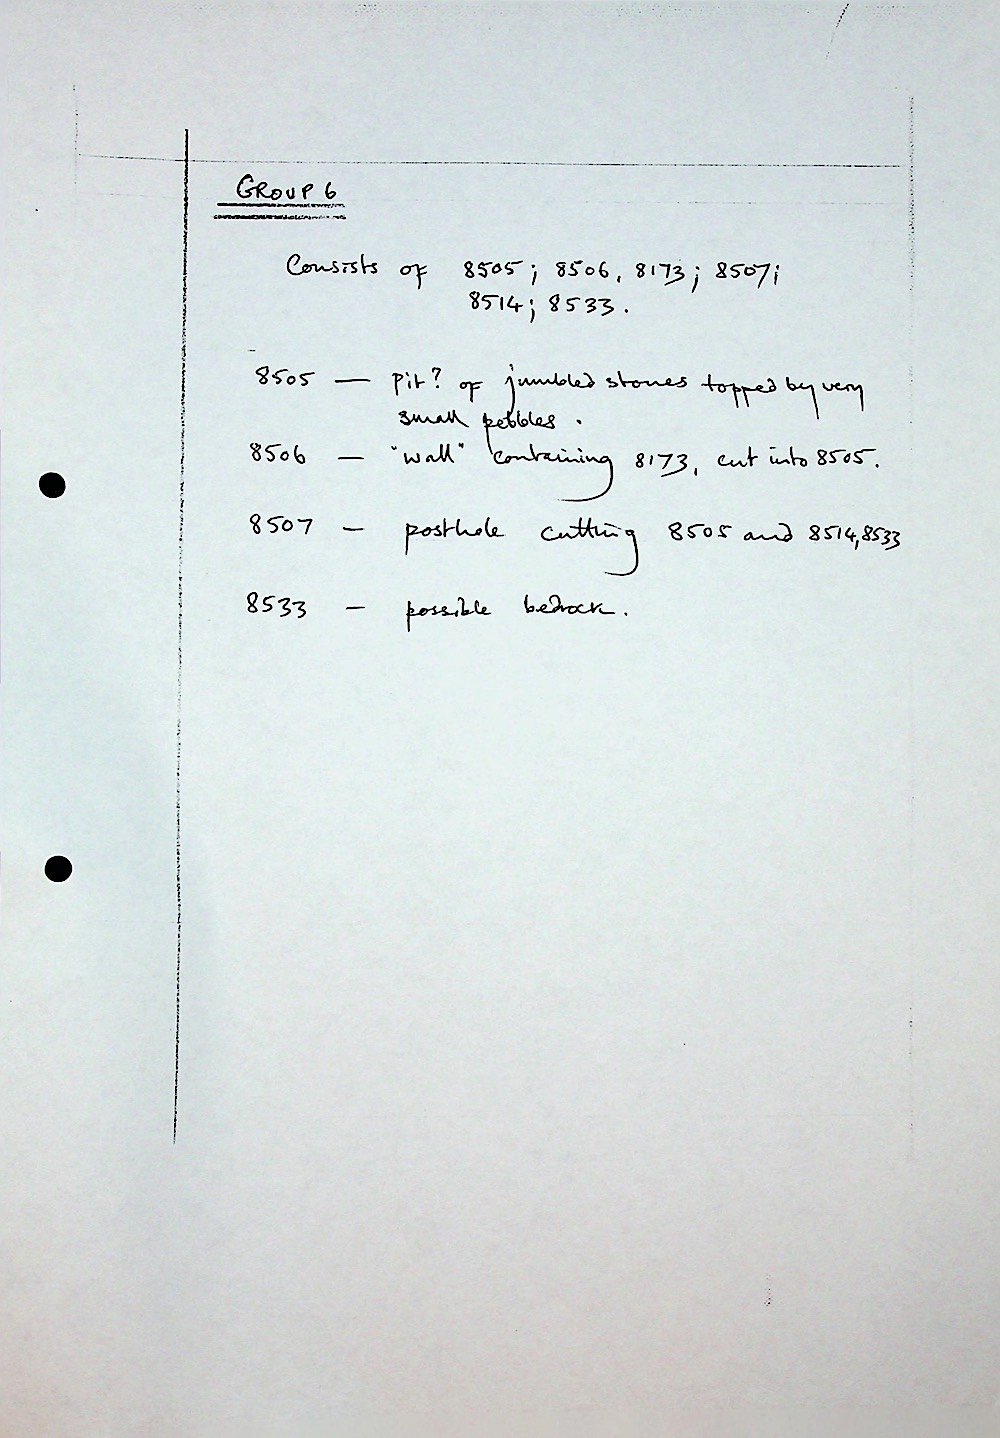 GROUP 6
Consists of 8505; 8506, 8173; 8507;
8514; 8533.
8505 — Pit? of jumbled stones topped by very
small pebbles.
8506 — "wall" containing 8173, cut into 8505.
8507 — posthole cutting 8505 and 8514,8533
8533 — possible bedrock.